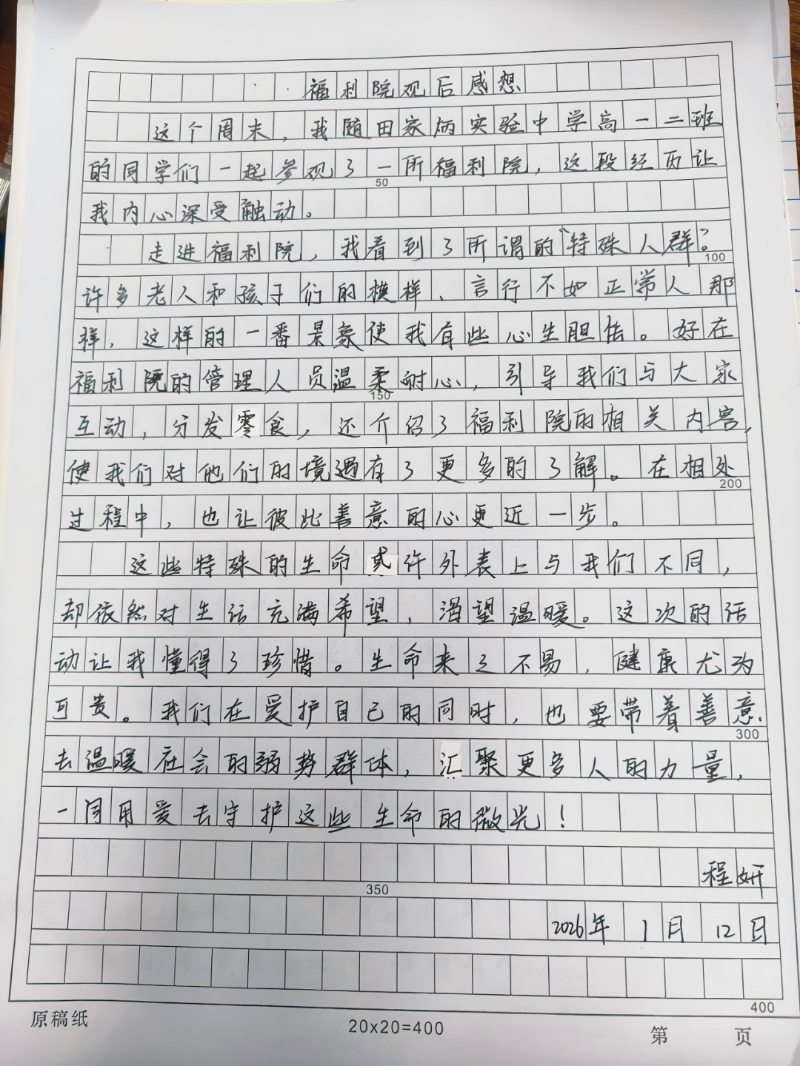 福利院观后感想
这个周末，我随田家炳实验中学高一二班
的同学们一起参观了一所福利院，这段经历让
50
我内心深受触动。
走进福利院，我看到了所谓的“特殊人群”。
100
许多老人和孩子们的模样、言行不如正常人那
样，这样的一番景象使我有些心生胆怯。好在
福利院的管理人员温柔耐心，引导我们与大家
150
互动，分发零食，还介绍了福利院的相关内容，
使我们对他们的境遇有了更多的了解。在相处
200
过程中，也让彼此善意的心更近一步。
这些特殊的生命或许外表上与我们不同，
却依然对生活充满希望，渴望温暖。这次的活
动让我懂得了珍惜。生命来之不易，健康尤为
可贵。我们在爱护自己的同时，也要带着善意
300
去温暖社会的弱势群体，汇聚更多人的力量，
一同用爱去守护这些生命的微光！
程妍
350
2026年1月12日
400
原稿纸
20x20=400
第 页